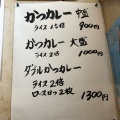 かつカレー 中盛
ライス1.5倍 900円
かつカレー 大盛
ライス2倍 1000円
ダブルかつカレー
ライス2倍
ロースカツ2枚 1300円